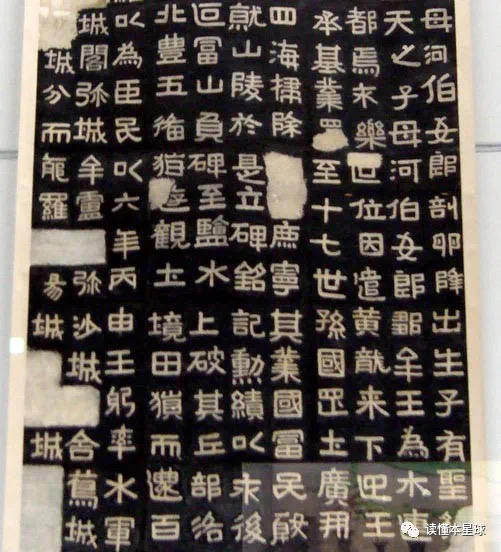 母河伯女郎剖卵降出生子有聖
天之子母河伯女郎鄒牟王為木連
都焉不樂世位因遣黃龍來下迎王
承基業至十七世孫國罡上廣開
四海掃除庶寧其業國富民殷
就山陵於是立碑銘記勳績以永後
叵富山負碑至鹽水上破其丘部洛
北豊五備猶遊觀土境田獵而還百
以為臣民以六年丙申王躬率水軍
城閣弥城牟盧弥沙城舍蔦城
城分而羅昜城城
读懂本星球